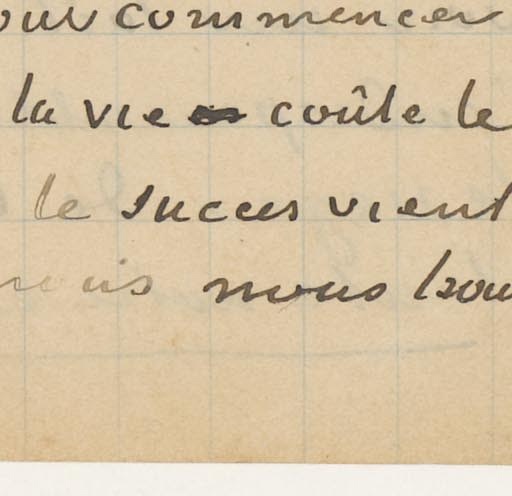 our commencer
la vie coûte le
le succes vient
mais nous trou